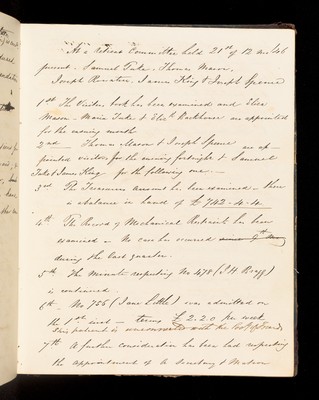 At a Retreat Committee held 21st of 12 mo/46
present – Samuel Tuke, Thomas Mason,
Joseph Rowntree, James King & Joseph Spence
1st The Visitors book has been examined and Eliza
Mason – Maria Tuke & Elizth Backhouse are appointed
for the ensuing month
2nd – Thomas Mason & Joseph Spence are ap-
pointed visitors for the ensuing fortnight & Samuel
Tuke & James King for the following one. –
3rd The Treasurers account has been examined – there
is a balance in hand of £742.4.4
4th The Record of Mechanical Restraint has been
examined – No case has occurred
during the last quarter.
5th The Minute respecting No 478 (J H Bragg)
is continued.
6th No 756 (Jane Little) was admitted on
the 1st inst – terms £2.2.0 per week
This patient is unconnected with the Socy of Friends
7th A further consideration has been had respecting
the appointment of a Secretary & Matron